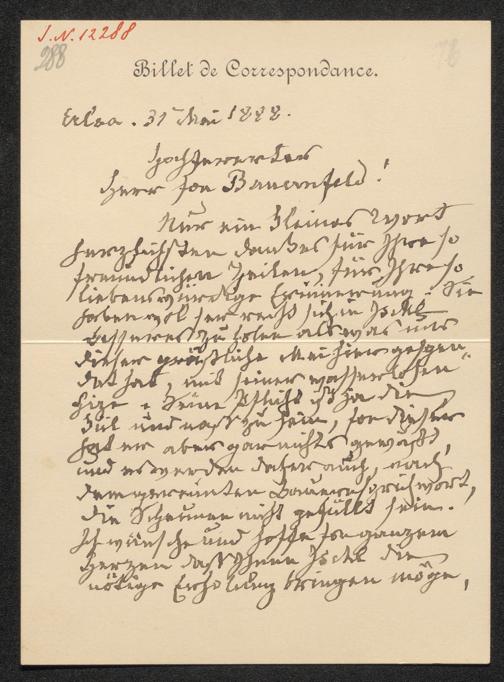 J.N. 12288
288
76
Billet de Correspondance.
Erlaa. 31 Mai 1888.
Hochverertes
Herr von Bauernfeld!
Nur ein kleines Wort
herzlichsten Dankes für Ihre so
freundlichen Zeilen, für Ihre so
liebenswürdige Erinnerung. Sie
haben wol ser recht sich in Ischl
besseres zu holen als was uns
dieser grässliche Mai hier gespen-
det hat, mit seiner wasserlosen
Seine Pflicht ist ja die
kül und nass zu sein, von dieser
hat er aber gar nichts gewusst,
und es werden daher auch, nach
dem gereimten Bauernsprichwort,
die Scheunen nicht gefüllt sein.
Ich wünsche und hoffe von ganzem
Herzen dass Ihnen Ischl die
nötige Erholung bringen möge,